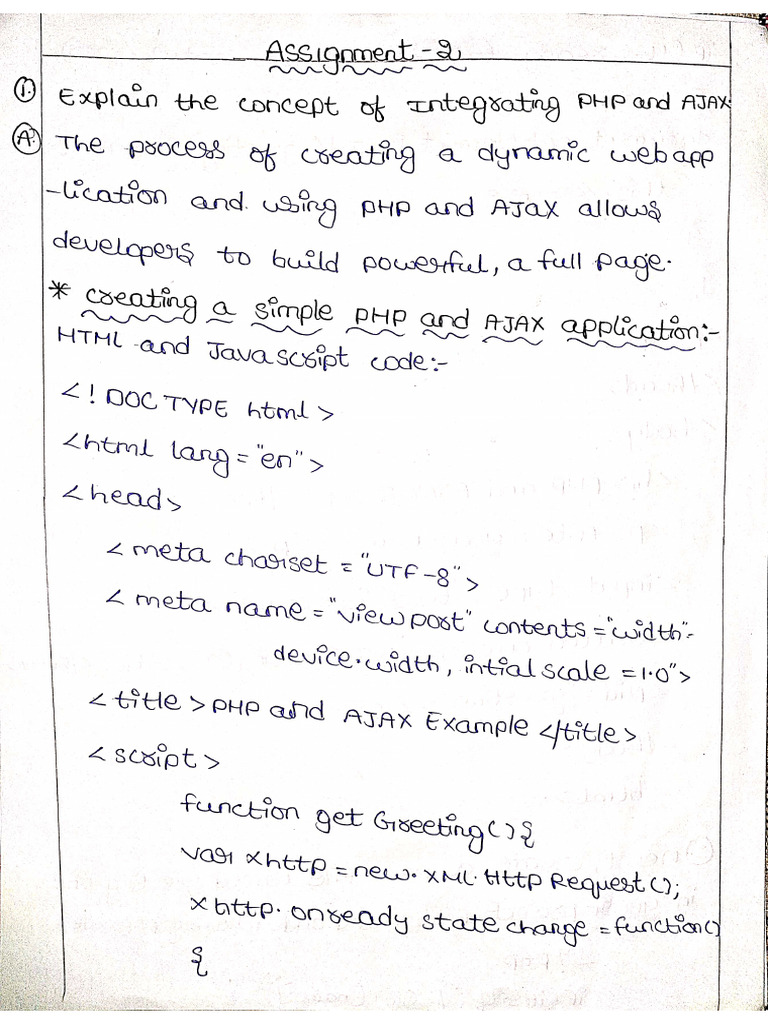 Assignment-2
1. Explain the concept of Integrating PHP and AJAX.
A. The process of creating a dynamic web app
-lication and using PHP and AJAX allows
developers to build powerful, a full page.
* creating a simple PHP and AJAX application:-
HTML and Javascript code:-
<! DOCTYPE html>
<html lang="en">
<head>
<meta charset = "UTF-8">
<meta name = "viewport" contents = "width"=
device.width, intial scale = 1.0">
<title> PHP and AJAX Example </title>
<script>
function get Greeting(){
var xhttp = new. XML. HTTP Request();
xhttp. onready state change = function()
{